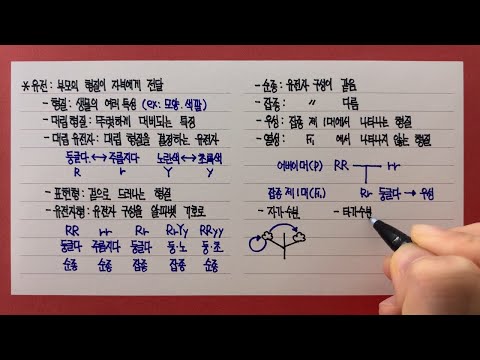 *유전: 부모의 형질이 자녀에게 전달
- 형질: 생물의 여러 특성 (ex: 모양, 색깔)
- 대립 형질: 뚜렷하게 대비되는 특징
- 대립 유전자: 대립 형질을 결정하는 유전자
둥글다 ↔ 주름지다 노란색 ↔ 초록색
R r Y y
- 표현형: 겉으로 드러나는 형질
- 유전자형: 유전자 구성을 알파벳 기호로
RR rr Rr RrYy RRyy
둥글다 주름지다 둥글다 둥·노 둥·초
순종 순종 잡종 잡종 순종
- 순종: 유전자 구성이 같음
- 잡종: 〃 다름
- 우성: 잡종 제 1대에서 나타나는 형질
- 열성: F₁ 에서 나타나지 않는 형질
어버이대(P) RR rr
잡종 제1대(F₁) Rr 둥글다 → 우성
- 자가수분 - 타가수분